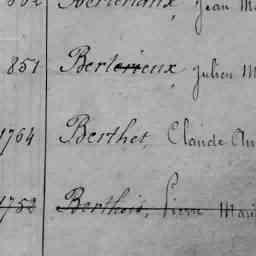 Berteriaux, Jean M
851 Berterreux, Julien M
1764 Berthet, Claude An
1752 Berthois, Pierre Mari